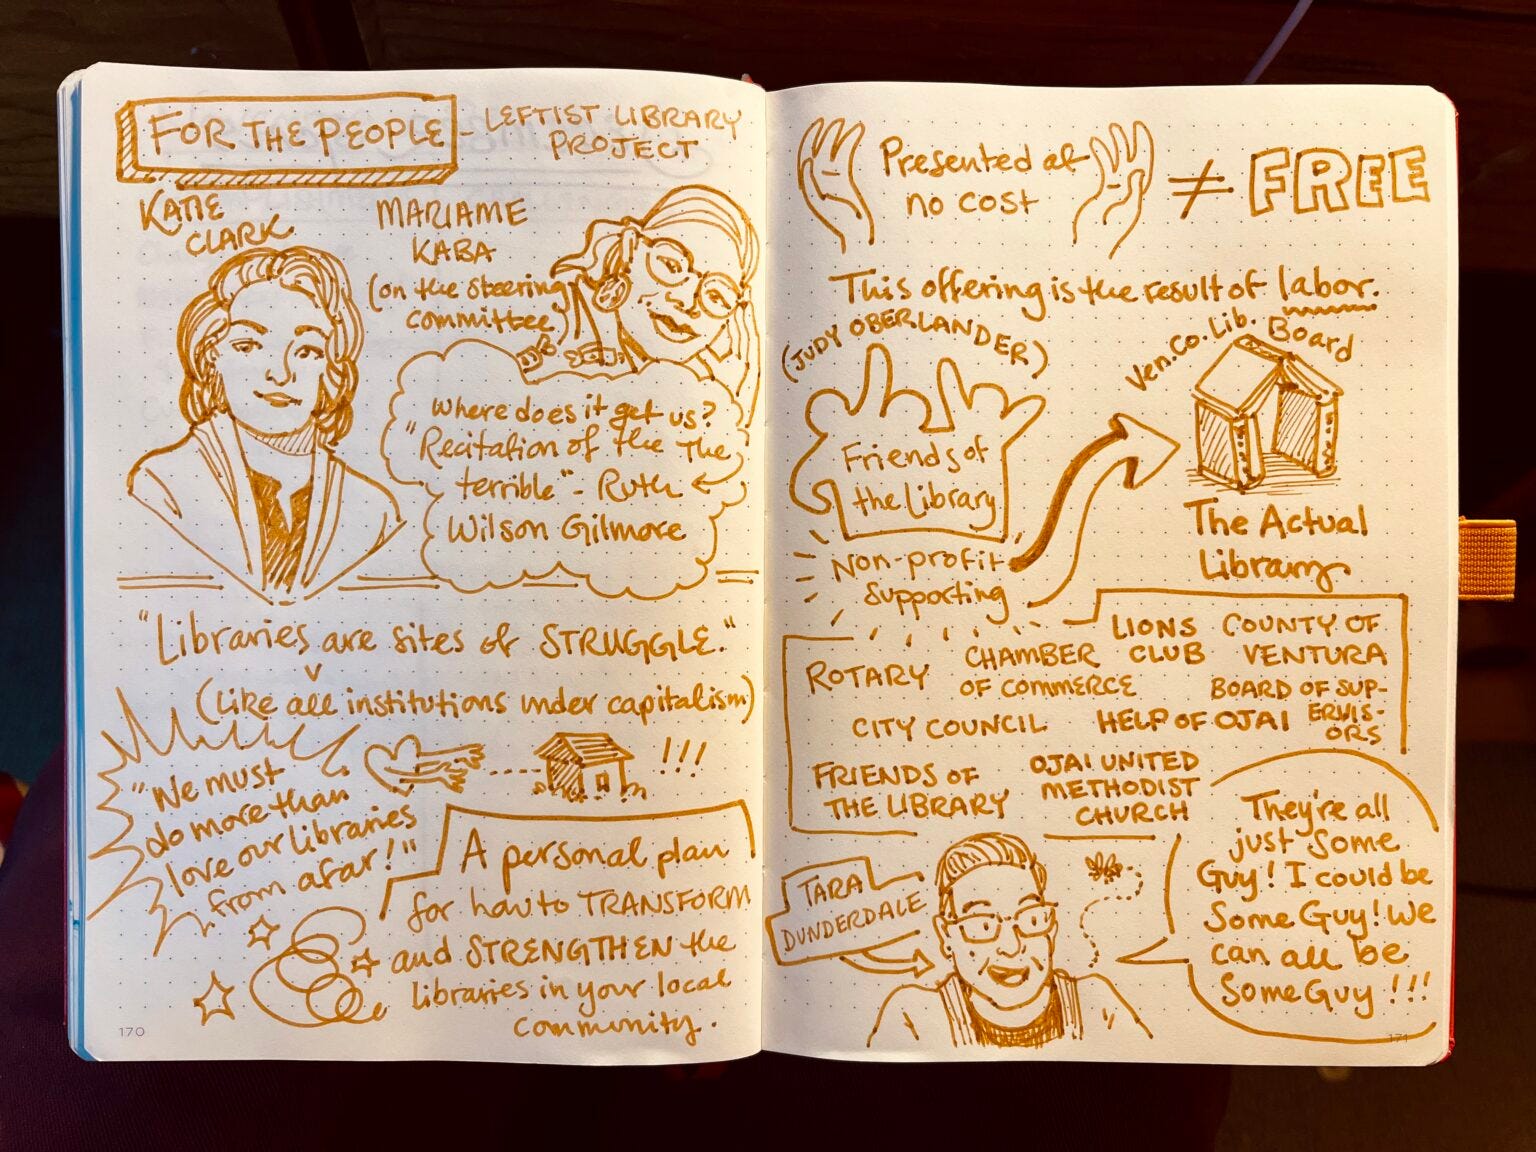 FOR THE PEOPLE - LEFTIST LIBRARY
PROJECT
KATIE
CLARK
MARIAME
KABA
(on the steering
committee)
Where does it get us?
"Recitation of the The
terrible" - Ruth
Wilson Gilmore
"Libraries are sites of STRUGGLE."
(like all institutions under capitalism)
"We must
do more than
love our libraries
from afar!"
!!!
A personal plan
for how to TRANSFORM
and STRENGTHEN the
libraries in your local
community.
170
Presented at
no cost
≠ FREE
This offering is the result of labor.
(JUDY OBERLANDER)
Friends of
the Library
Non-profit
Supporting
Ven. Co. Lib. Board
The Actual
Library
ROTARY
CHAMBER
OF COMMERCE
LIONS
CLUB
COUNTY OF
VENTURA
BOARD OF SUP-
ERVIS-
ORS
CITY COUNCIL
HELP OF OJAI
FRIENDS OF
THE LIBRARY
OJAI UNITED
METHODIST
CHURCH
TARA
DUNDERDALE
They're all
just Some
Guy! I could be
Some Guy! We
can all be
Some Guy!!!
171